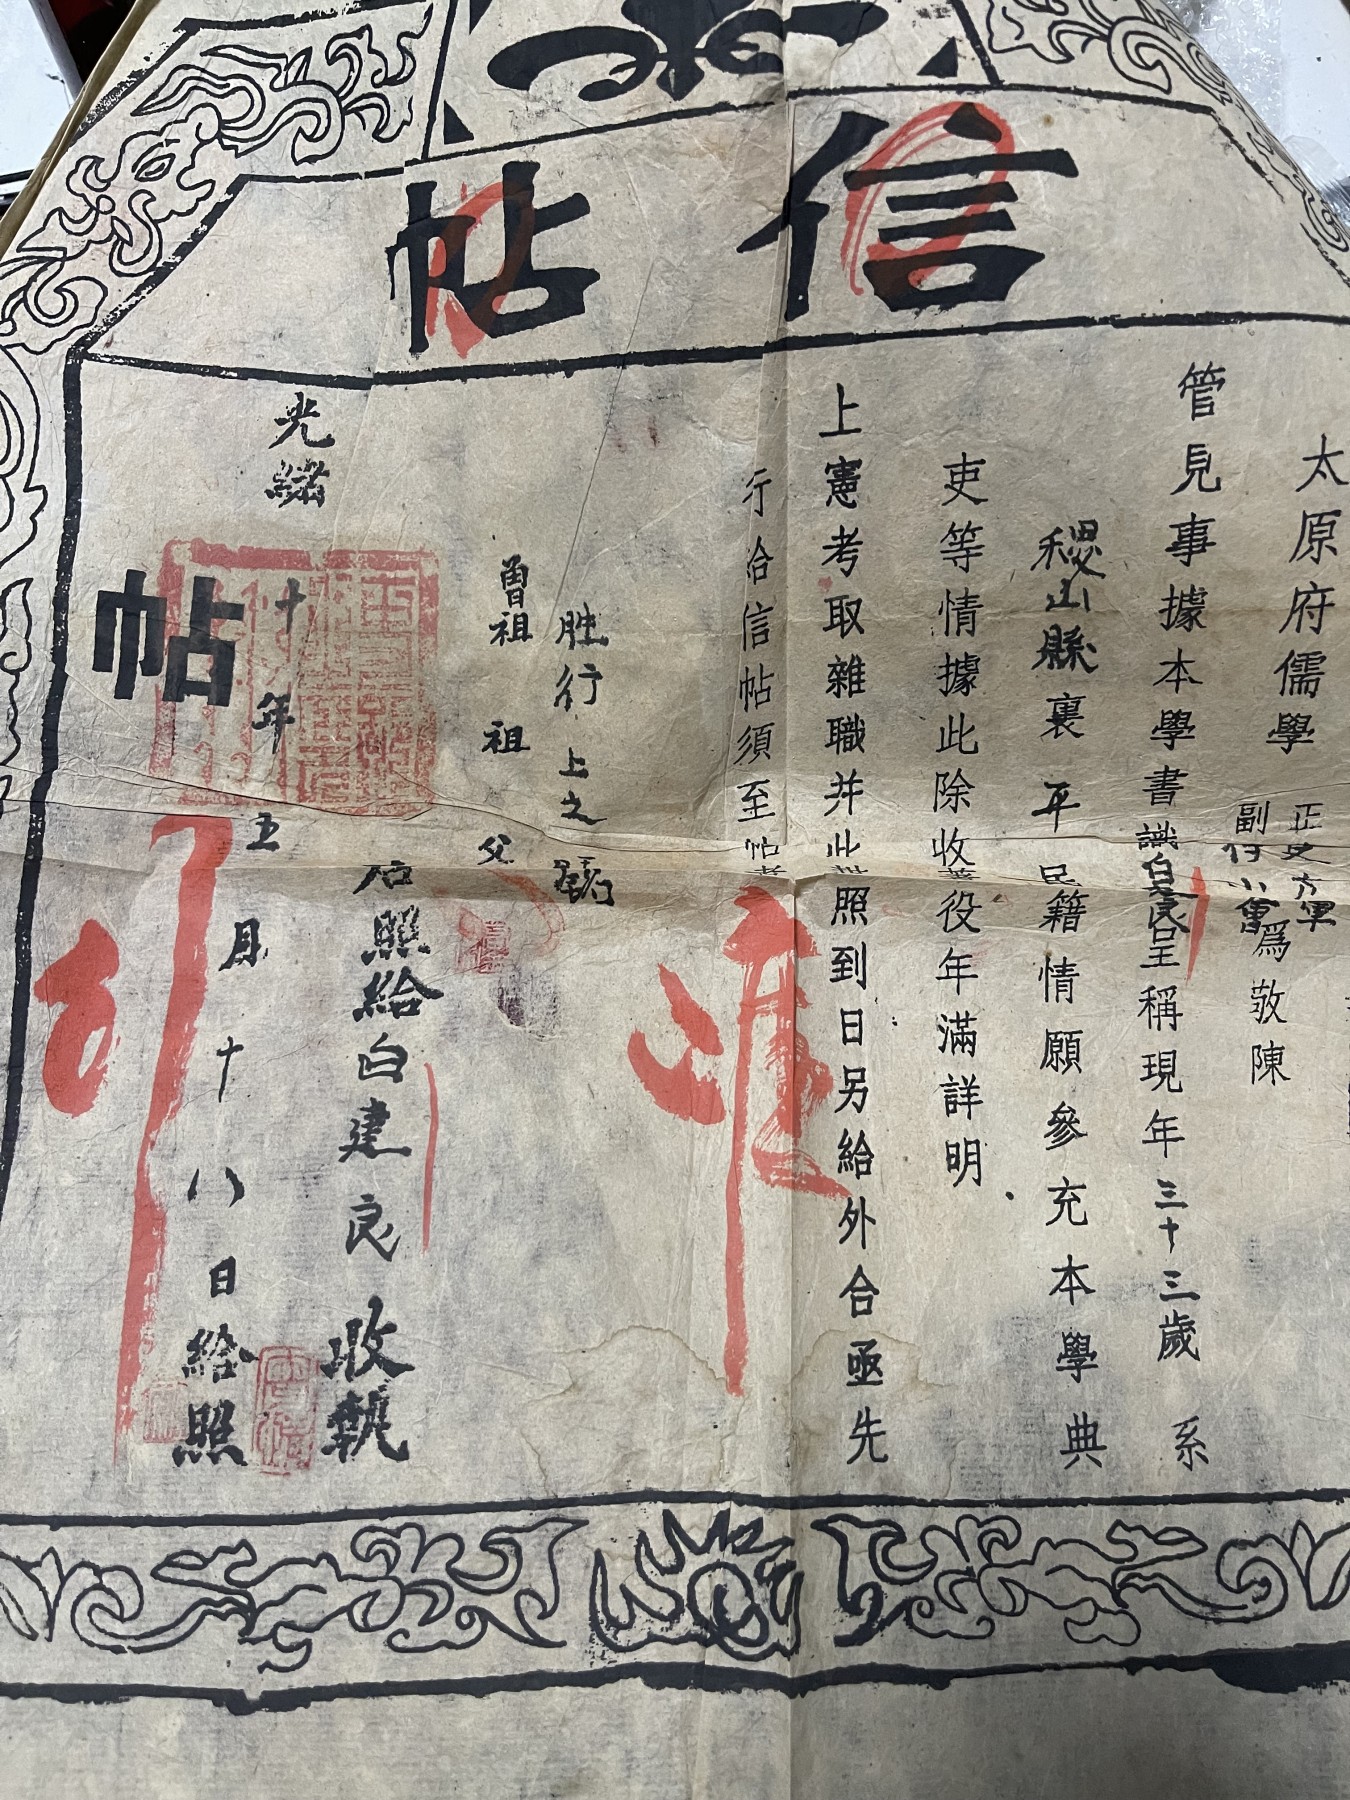 信帖
太原府儒學
正
副
為敬陳
管見事據本學書識白建良呈稱現年三十三歲系
稷山縣裏平民籍情願參充本學典
吏等情據此除收著役年滿詳明
上憲考取雜職并此照到日另給外合亟先
行給信帖須至帖者
上之
曾祖 祖 父
右照給白建良收執
光緒十年五月十八日給照
帖